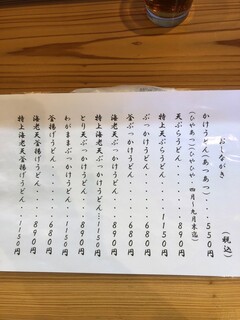 おしながき
(税込)
かけうどん(あつあつ)・・・550円
(ひやあつ)(ひやひや 四月〜九月末迄)
天ぷらうどん・・・・・・890円
特上天ぷらうどん・・・・1150円
ぶっかけうどん・・・・・680円
釜ぶっかけうどん・・・・680円
海老天ぶっかけうどん・・・890円
特上海老天ぶっかけうどん・・・1150円
とり天ぶっかけうどん・・・890円
わがままぶっかけうどん・・1150円
釜揚げうどん・・・・・・680円
海老天釜揚げうどん・・・・890円
特上海老天釜揚げうどん・・1150円